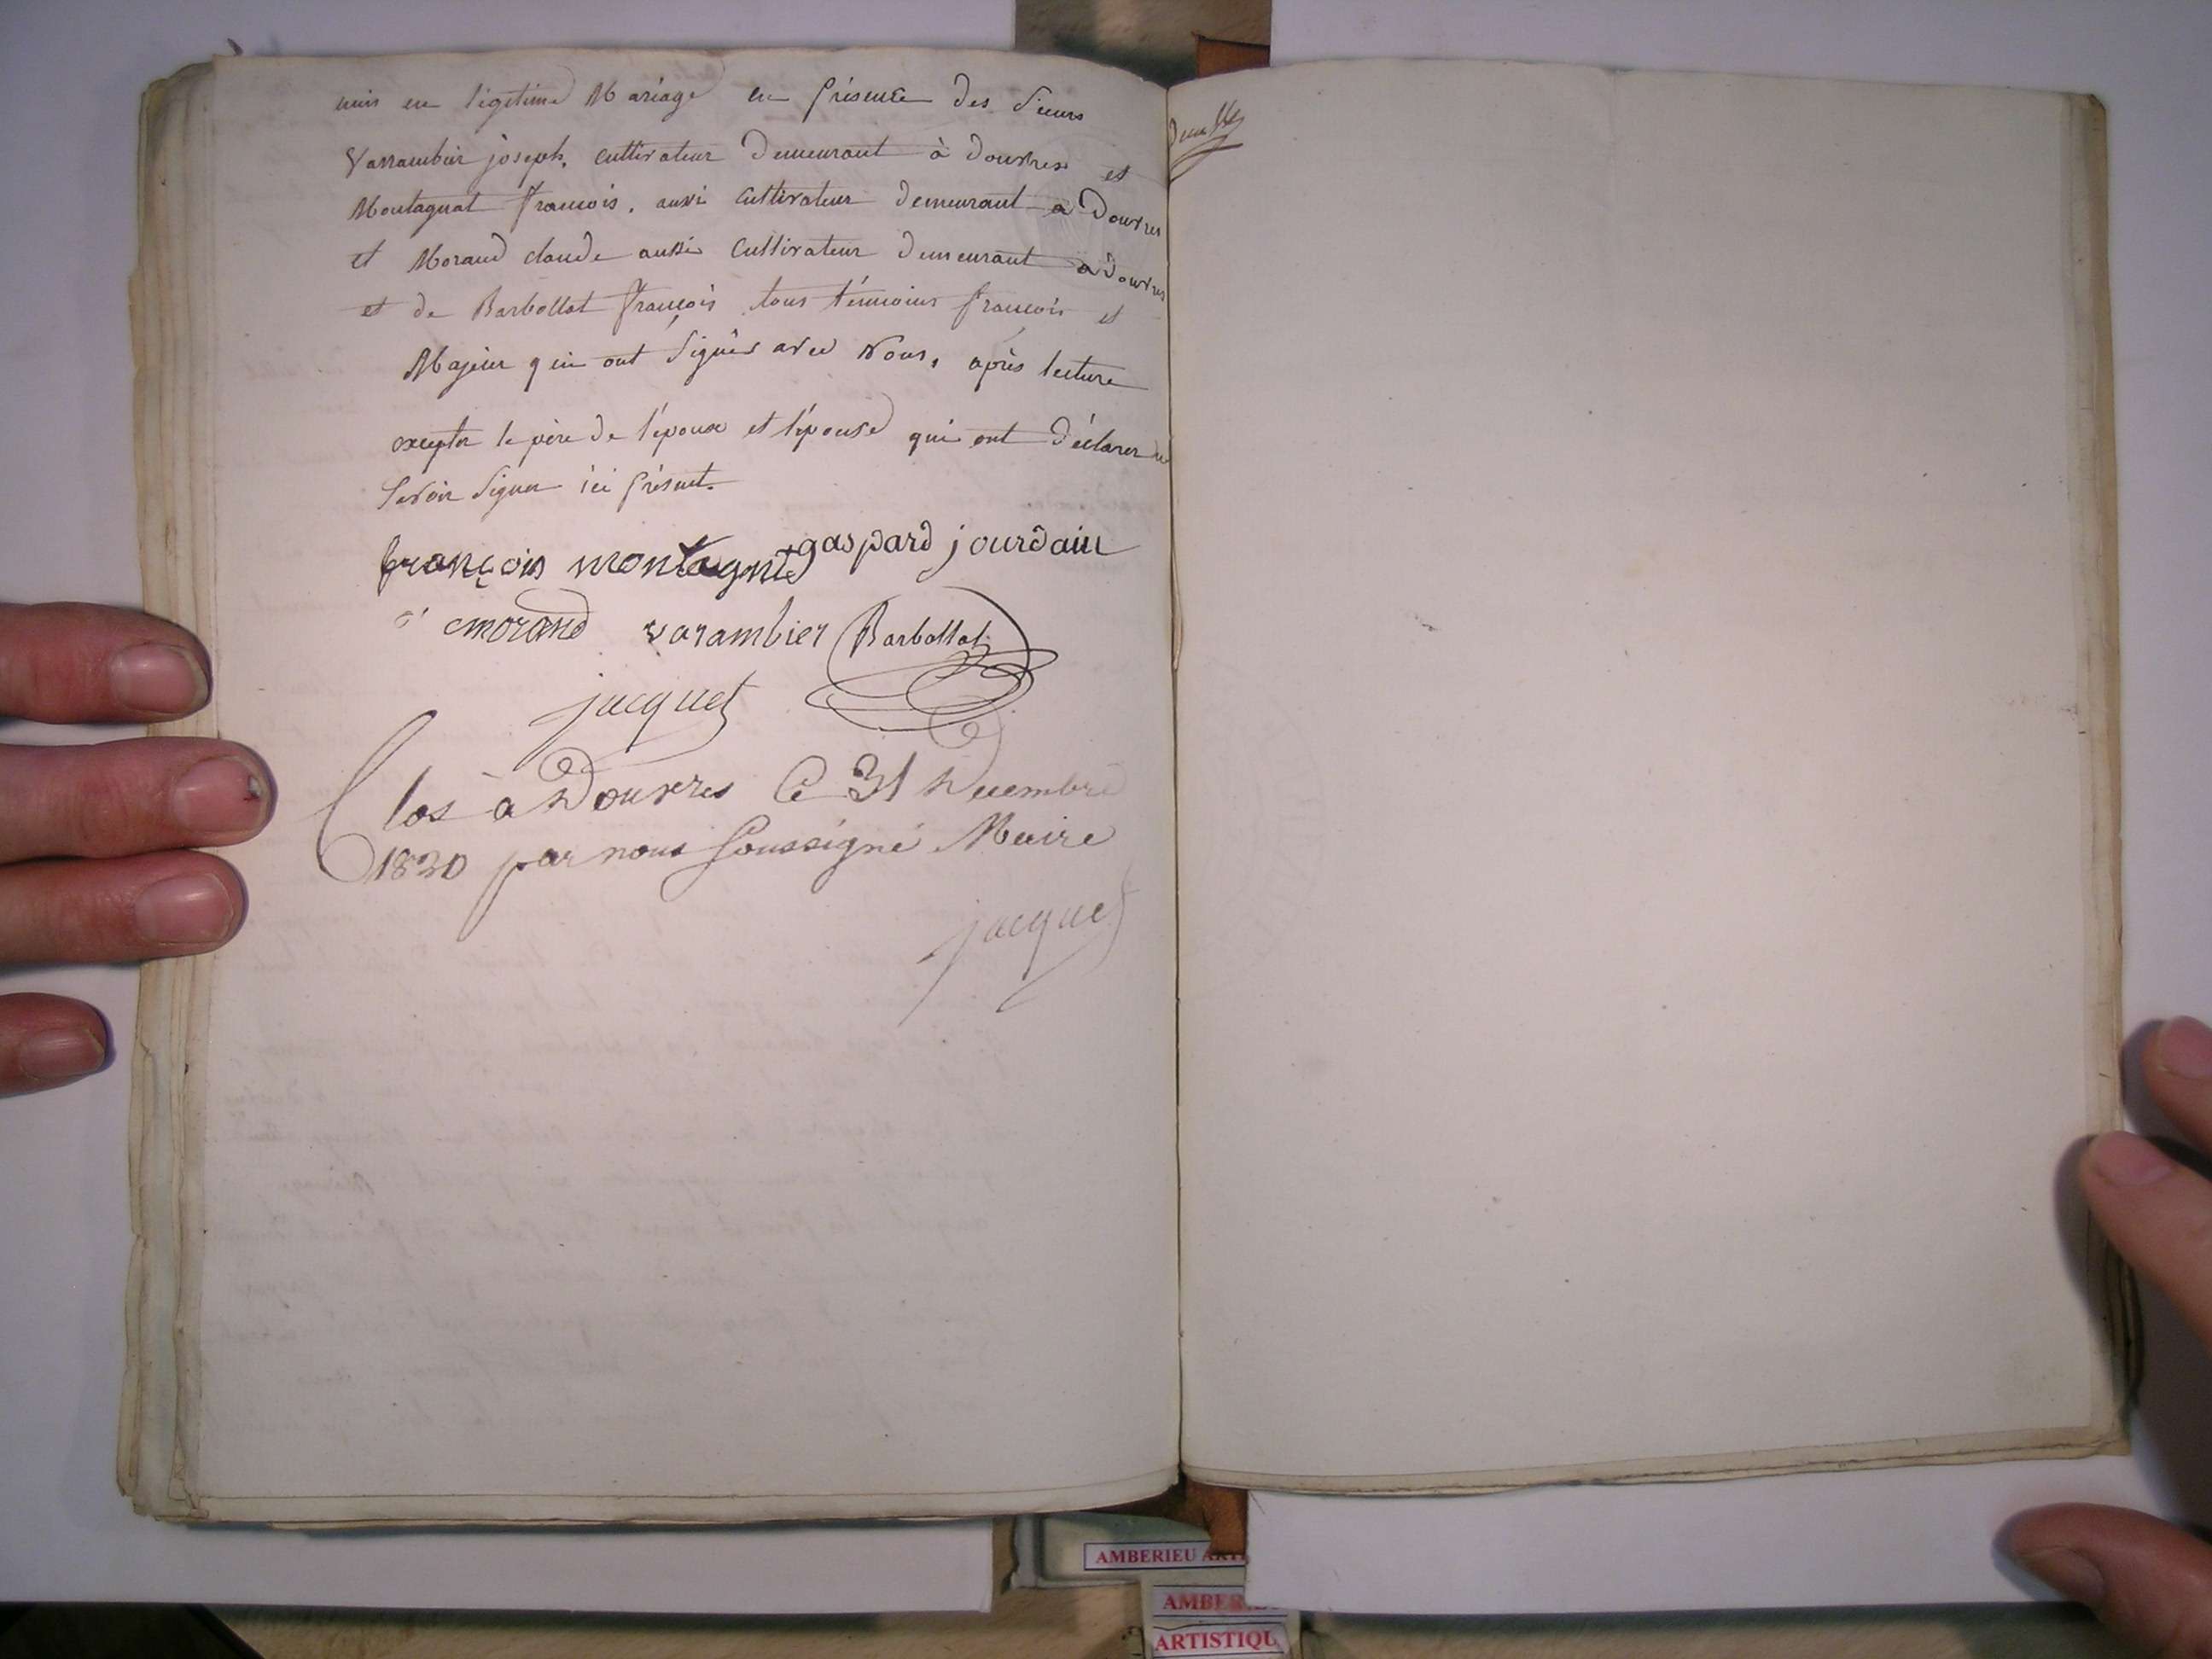 unis en légitime Mariage en présence des Sieurs
Varrambier joseph, cultivateur Demeurant à douvres et
Montagnat françois, aussi cultivateur demeurant a Douvres
et Morand claude aussi cultivateur demeurant a douvres
et de Barbollat françois tous témoins françois et
Majeur qui ont signés avec Nous, après lecture
excepter le père de l'époux et l'épouse qui ont déclarer ne
savoir signer ici présent.
françois montagnat gaspard jourdain
morand varambier Barbollat
jacquet
Clos à Douvres Ce 31 Decembre
1830 par nous Soussigné Maire
jacquet
AMBERIEU
ARTISTIQU